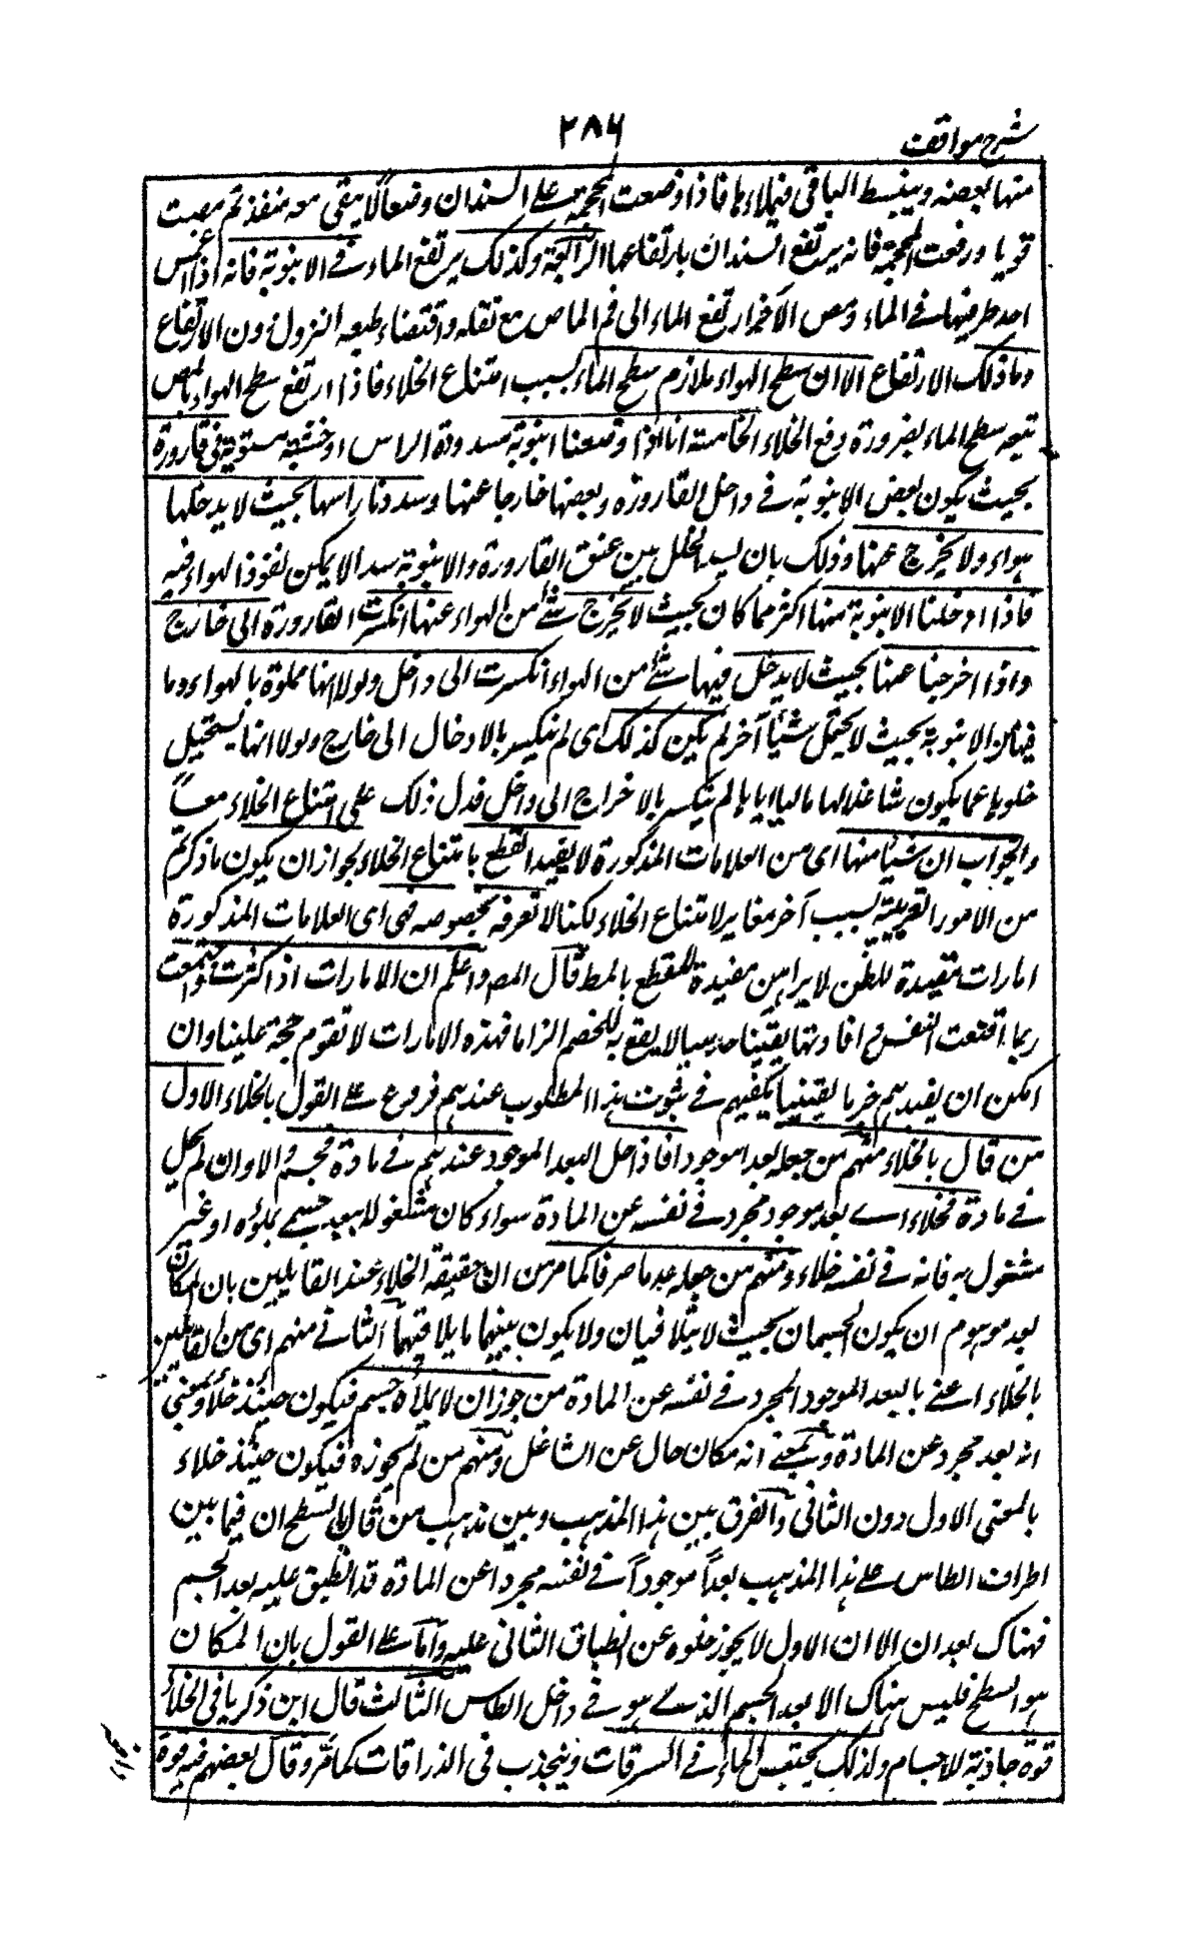 شرح مواقف
٢٨٦
منها بعضه وينبسط الباقي فيملاءها فاذا وضعت المحجمة على السندان وضعاً لا يبقى معه منفذ ثم مصت
قويا ورفعت المحجمة فانه يرتفع السندان بارتفاعها الرابعة وكذلك يرتفع الماء في الانبوبة فانه اذا اغمس
احد طرفيها في الماء ومص الآخر ارتفع الماء الى فم الماص مع ثقله واقتضاء طبعه النزول دون الارتفاع
وما ذلك الارتفاع الا ان سطح الهواء ملازم سطح الماء بسبب امتناع الخلاء فاذا ارتفع سطح الهواء بالمص
تبعه سطح الماء لضرورة دفع الخلاء الخامسة انا اذا وضعنا انبوبة مسدودة الراس او خشبة مستوية في قارورة
بحيث يكون بعض الانبوبة في داخل القارورة وبعضها خارجا عنها وسددنا راسها بحيث لا يدخلها
هواء ولا يخرج عنها وذلك بان يسد الخلل بين عنق القارورة والانبوبة سدا لا يمكن نفوذ الهواء فيه
فاذا ادخلنا الانبوبة منها اكثر مما كان بحيث لا يخرج شئ من الهواء عنها انكسرت القارورة الى خارج
واذا اخرجنا عنها بحيث لا يدخل فيها شئ من الهواء انكسرت الى داخل ولولا انها مملوة بالهواء وما
فيها من الانبوبة بحيث لا يحتمل شيئا آخر لم يكن كذلك اى لم ينكسر بالادخال الى خارج ولولا انها يستحيل
خلوها عما يكون شاغلا لها ماليا اياها لم ينكسر بالاخراج الى داخل فدل ذلك على امتناع الخلاء معاً
والجواب ان شيئا منها اى من العلامات المذكورة لا يفيد القطع بامتناع الخلاء لجواز ان يكون ما ذكرتم
من الامور الغريبة بسبب آخر مغاير لامتناع الخلاء لكنا لا نعرفه بخصوصه فهى اى العلامات المذكورة
امارات مفيدة للظن لا براهين مفيدة للقطع بالمط قال المص واعلم ان الامارات اذا كثرت واجتمعت
ربما اقنعت النفس وافادتها يقينا حدسيا لا يقع به للخصم الزام فهذه الامارات لا تقوم حجة علينا وان
امكن ان يفيدهم جزما يقينيا يكفيهم في ثبوت هذا المطلوب عندهم فروع على القول بالخلاء الاول
من قال بالخلاء منهم من جعله بعدا موجودا فاذا حل البعد الموجود عندهم في مادة فجسم والا وان لم يحل
في مادة فخلاء اى بعد موجود مجرد في نفسه عن المادة سواء كان مشغولا ببعد جسمى يملؤه او غير
مشغول به فانه في نفسه خلاء ومنهم من جعله عدما صرفا كما مر من ان حقيقة الخلاء عند القايلين بان المكان
بعد موهوم ان يكون الجسمان بحيث لا يتلاقيان ولا يكون بينهما ما يلاقيهما الثاني منهم اى من القايلين
بالخلاء اعنى بالبعد الموجود المجرد في نفسه عن المادة من جوز ان لا يملأه جسم فيكون حينئذ خلاء بمعنى
انه بعد مجرد عن المادة وبمعنى انه مكان خال عن الشاغل ومنهم من لم يجوزه فيكون حينئذ خلاء
بالمعنى الاول دون الثاني والفرق بين هذا المذهب وبين مذهب من قال بالسطح ان فيما بين
اطراف الطاس على هذا المذهب بعداً موجوداً في نفسه مجردا عن المادة قد انطبق عليه بعد الجسم
فهناك بعدان الا ان الاول لا يجوز خلوه عن انطباق الثاني عليه واما على القول بان المكان
هو السطح فليس هناك الا بعد الجسم الذى هو في داخل الطاس الثالث قال ابن ذكريا في الخلاء
قوة جاذبة للاجسام ولذلك يحتبس الماء في السرقات وينجذب في الذراقات كما مر وقال بعضهم فيه قوة